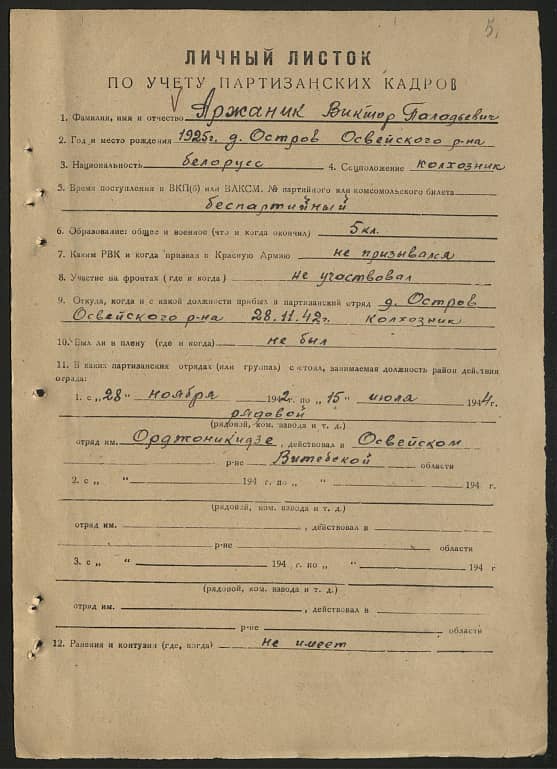 5.
ЛИЧНЫЙ ЛИСТОК
ПО УЧЕТУ ПАРТИЗАНСКИХ КАДРОВ
1. Фамилия, имя и отчество Аржаник Виктор Паладьевич
2. Год и место рождения 1925г. д. Остров Освейского р-на
3. Национальность белорусс 4. Соцположение колхозник
5. Время поступления в ВКП(б) или ВЛКСМ. № партийного или комсомольского билета
беспартийный
6. Образование: общее и военное (что и когда окончил) 5кл.
7. Каким РВК и когда призван в Красную Армию не призывался
8. Участие на фронтах (где и когда) не участвовал
9. Откуда, когда и с какой должности прибыл в партизанский отряд д. Остров
Освейского р-на 28.11.42г. колхозник
10. Был ли в плену (где и когда) не был
11. В каких партизанских отрядах (или группах) состоял, занимаемая должность район действия
отряда:
1. с „28" ноября 1942г. по „15" июля 1944г.
рядовой
(рядовой, ком. взвода и т. д.)
отряд им. Орджоникидзе, действовал в Освейском
р-не Витебской области
2. с „ " 194 г. по „ " 194 г.
(рядовой, ком. взвода и т. д.)
отряд им. , действовал в
р-не области
3. с „ " 194 г. по „ " 194 г
(рядовой, ком. взвода и т. д.)
отряд им. , действовал в
р-не области
12. Ранения и контузии (где, когда) не имеет